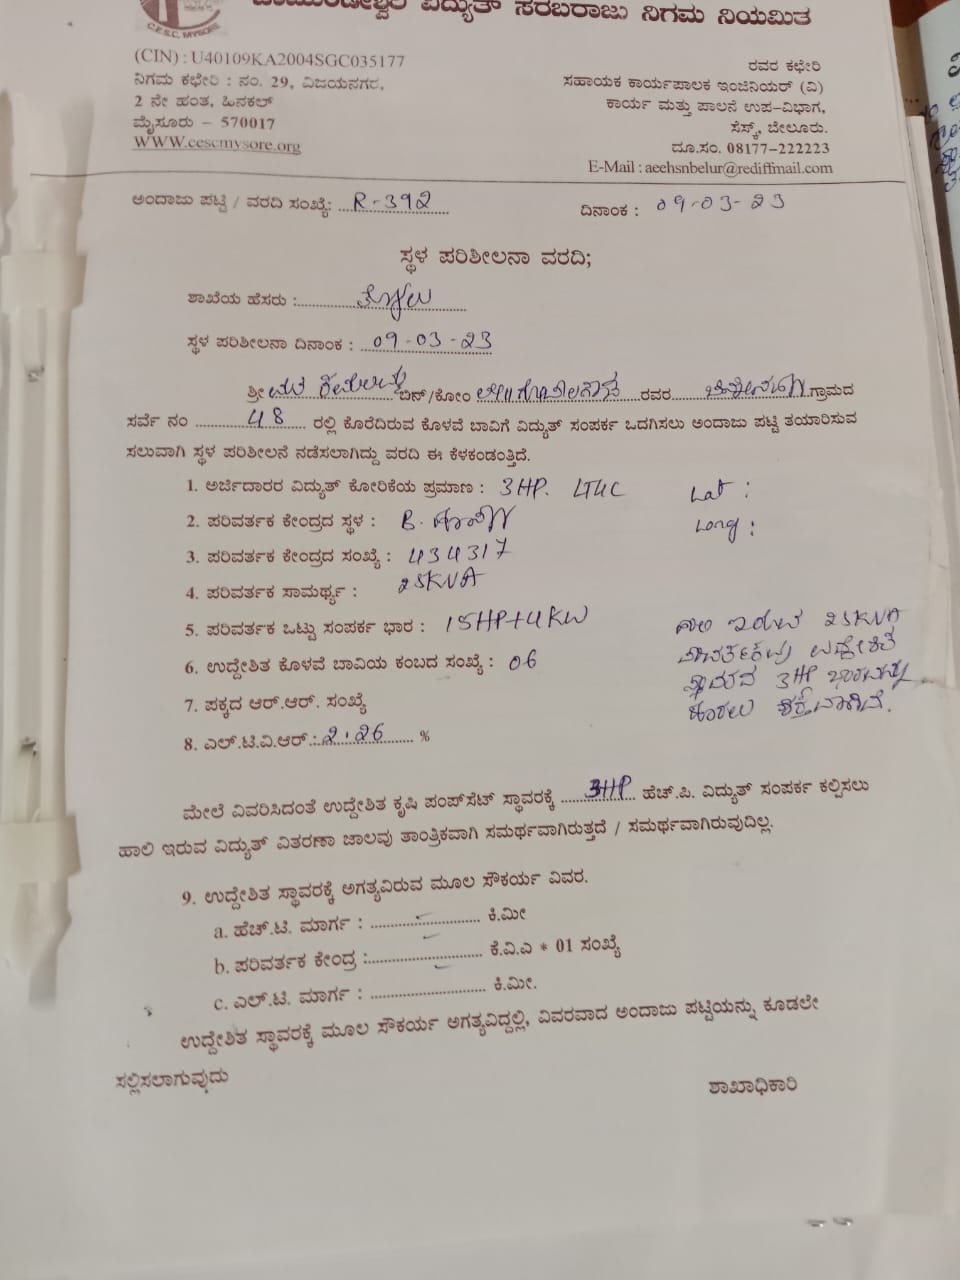 ವಿದ್ಯುತ್ ಸರಬರಾಜು ನಿಗಮ ನಿಯಮಿತ
C.E.S.C. MYSORE
(CIN) : U40109KA2004SGC035177
ನಿಗಮ ಕಛೇರಿ : ನಂ. 29, ವಿಜಯನಗರ,
2 ನೇ ಹಂತ, ಹಿನಕಲ್
ಮೈಸೂರು – 570017
WWW.cescmysore.org
ರವರ ಕಛೇರಿ
ಸಹಾಯಕ ಕಾರ್ಯಪಾಲಕ ಇಂಜಿನಿಯರ್ (ವಿ)
ಕಾರ್ಯ ಮತ್ತು ಪಾಲನೆ ಉಪ-ವಿಭಾಗ,
ಸೆಸ್ಕ್, ಬೇಲೂರು.
ದೂ.ಸಂ. 08177-222223
E-Mail : aeehsnbelur@rediffmail.com
ಅಂದಾಜು ಪಟ್ಟಿ / ವರದಿ ಸಂಖ್ಯೆ: R-392 ದಿನಾಂಕ : 09-03-23
ಸ್ಥಳ ಪರಿಶೀಲನಾ ವರದಿ;
ಶಾಖೆಯ ಹೆಸರು :
ಸ್ಥಳ ಪರಿಶೀಲನಾ ದಿನಾಂಕ : 09-03-23
ಶ್ರೀ ಬಿನ್/ಕೋಂ ರವರ ಗ್ರಾಮದ
ಸರ್ವೆ ನಂ 48 ರಲ್ಲಿ ಕೊರೆದಿರುವ ಕೊಳವೆ ಬಾವಿಗೆ ವಿದ್ಯುತ್ ಸಂಪರ್ಕ ಒದಗಿಸಲು ಅಂದಾಜು ಪಟ್ಟಿ ತಯಾರಿಸುವ
ಸಲುವಾಗಿ ಸ್ಥಳ ಪರಿಶೀಲನೆ ನಡೆಸಲಾಗಿದ್ದು ವರದಿ ಈ ಕೆಳಕಂಡಂತ್ತಿದೆ.
1. ಅರ್ಜಿದಾರರ ವಿದ್ಯುತ್ ಕೋರಿಕೆಯ ಪ್ರಮಾಣ : 3HP. Lat :
2. ಪರಿವರ್ತಕ ಕೇಂದ್ರದ ಸ್ಥಳ : B. Long :
3. ಪರಿವರ್ತಕ ಕೇಂದ್ರದ ಸಂಖ್ಯೆ : 434317
4. ಪರಿವರ್ತಕ ಸಾಮರ್ಥ್ಯ : 25KVA
5. ಪರಿವರ್ತಕ ಒಟ್ಟು ಸಂಪರ್ಕ ಭಾರ : 15HP+4KW
6. ಉದ್ದೇಶಿತ ಕೊಳವೆ ಬಾವಿಯ ಕಂಬದ ಸಂಖ್ಯೆ : 06
7. ಪಕ್ಕದ ಆರ್.ಆರ್. ಸಂಖ್ಯೆ
8. ಎಲ್.ಟಿ.ವಿ.ಆರ್.: 2.26 %
ಇರುವ 25KVA
ಉದ್ದೇಶಿತ
ಸ್ಥಾವರದ 3HP ಭಾರವನ್ನು
ಮೇಲೆ ವಿವರಿಸಿದಂತೆ ಉದ್ದೇಶಿತ ಕೃಷಿ ಪಂಪ್‌ಸೆಟ್ ಸ್ಥಾವರಕ್ಕೆ 3HP ಹೆಚ್.ಪಿ. ವಿದ್ಯುತ್ ಸಂಪರ್ಕ ಕಲ್ಪಿಸಲು
ಹಾಲಿ ಇರುವ ವಿದ್ಯುತ್ ವಿತರಣಾ ಜಾಲವು ತಾಂತ್ರಿಕವಾಗಿ ಸಮರ್ಥವಾಗಿರುತ್ತದೆ / ಸಮರ್ಥವಾಗಿರುವುದಿಲ್ಲ.
9. ಉದ್ದೇಶಿತ ಸ್ಥಾವರಕ್ಕೆ ಅಗತ್ಯವಿರುವ ಮೂಲ ಸೌಕರ್ಯ ವಿವರ.
a. ಹೆಚ್.ಟಿ. ಮಾರ್ಗ : ........................ ಕಿ.ಮೀ
b. ಪರಿವರ್ತಕ ಕೇಂದ್ರ :........................ ಕೆ.ವಿ.ಎ * 01 ಸಂಖ್ಯೆ
c. ಎಲ್.ಟಿ. ಮಾರ್ಗ : ........................ ಕಿ.ಮೀ.
ಉದ್ದೇಶಿತ ಸ್ಥಾವರಕ್ಕೆ ಮೂಲ ಸೌಕರ್ಯ ಅಗತ್ಯವಿದ್ದಲ್ಲಿ, ವಿವರವಾದ ಅಂದಾಜು ಪಟ್ಟಿಯನ್ನು ಕೂಡಲೇ
ಸಲ್ಲಿಸಲಾಗುವುದು
ಶಾಖಾಧಿಕಾರಿ